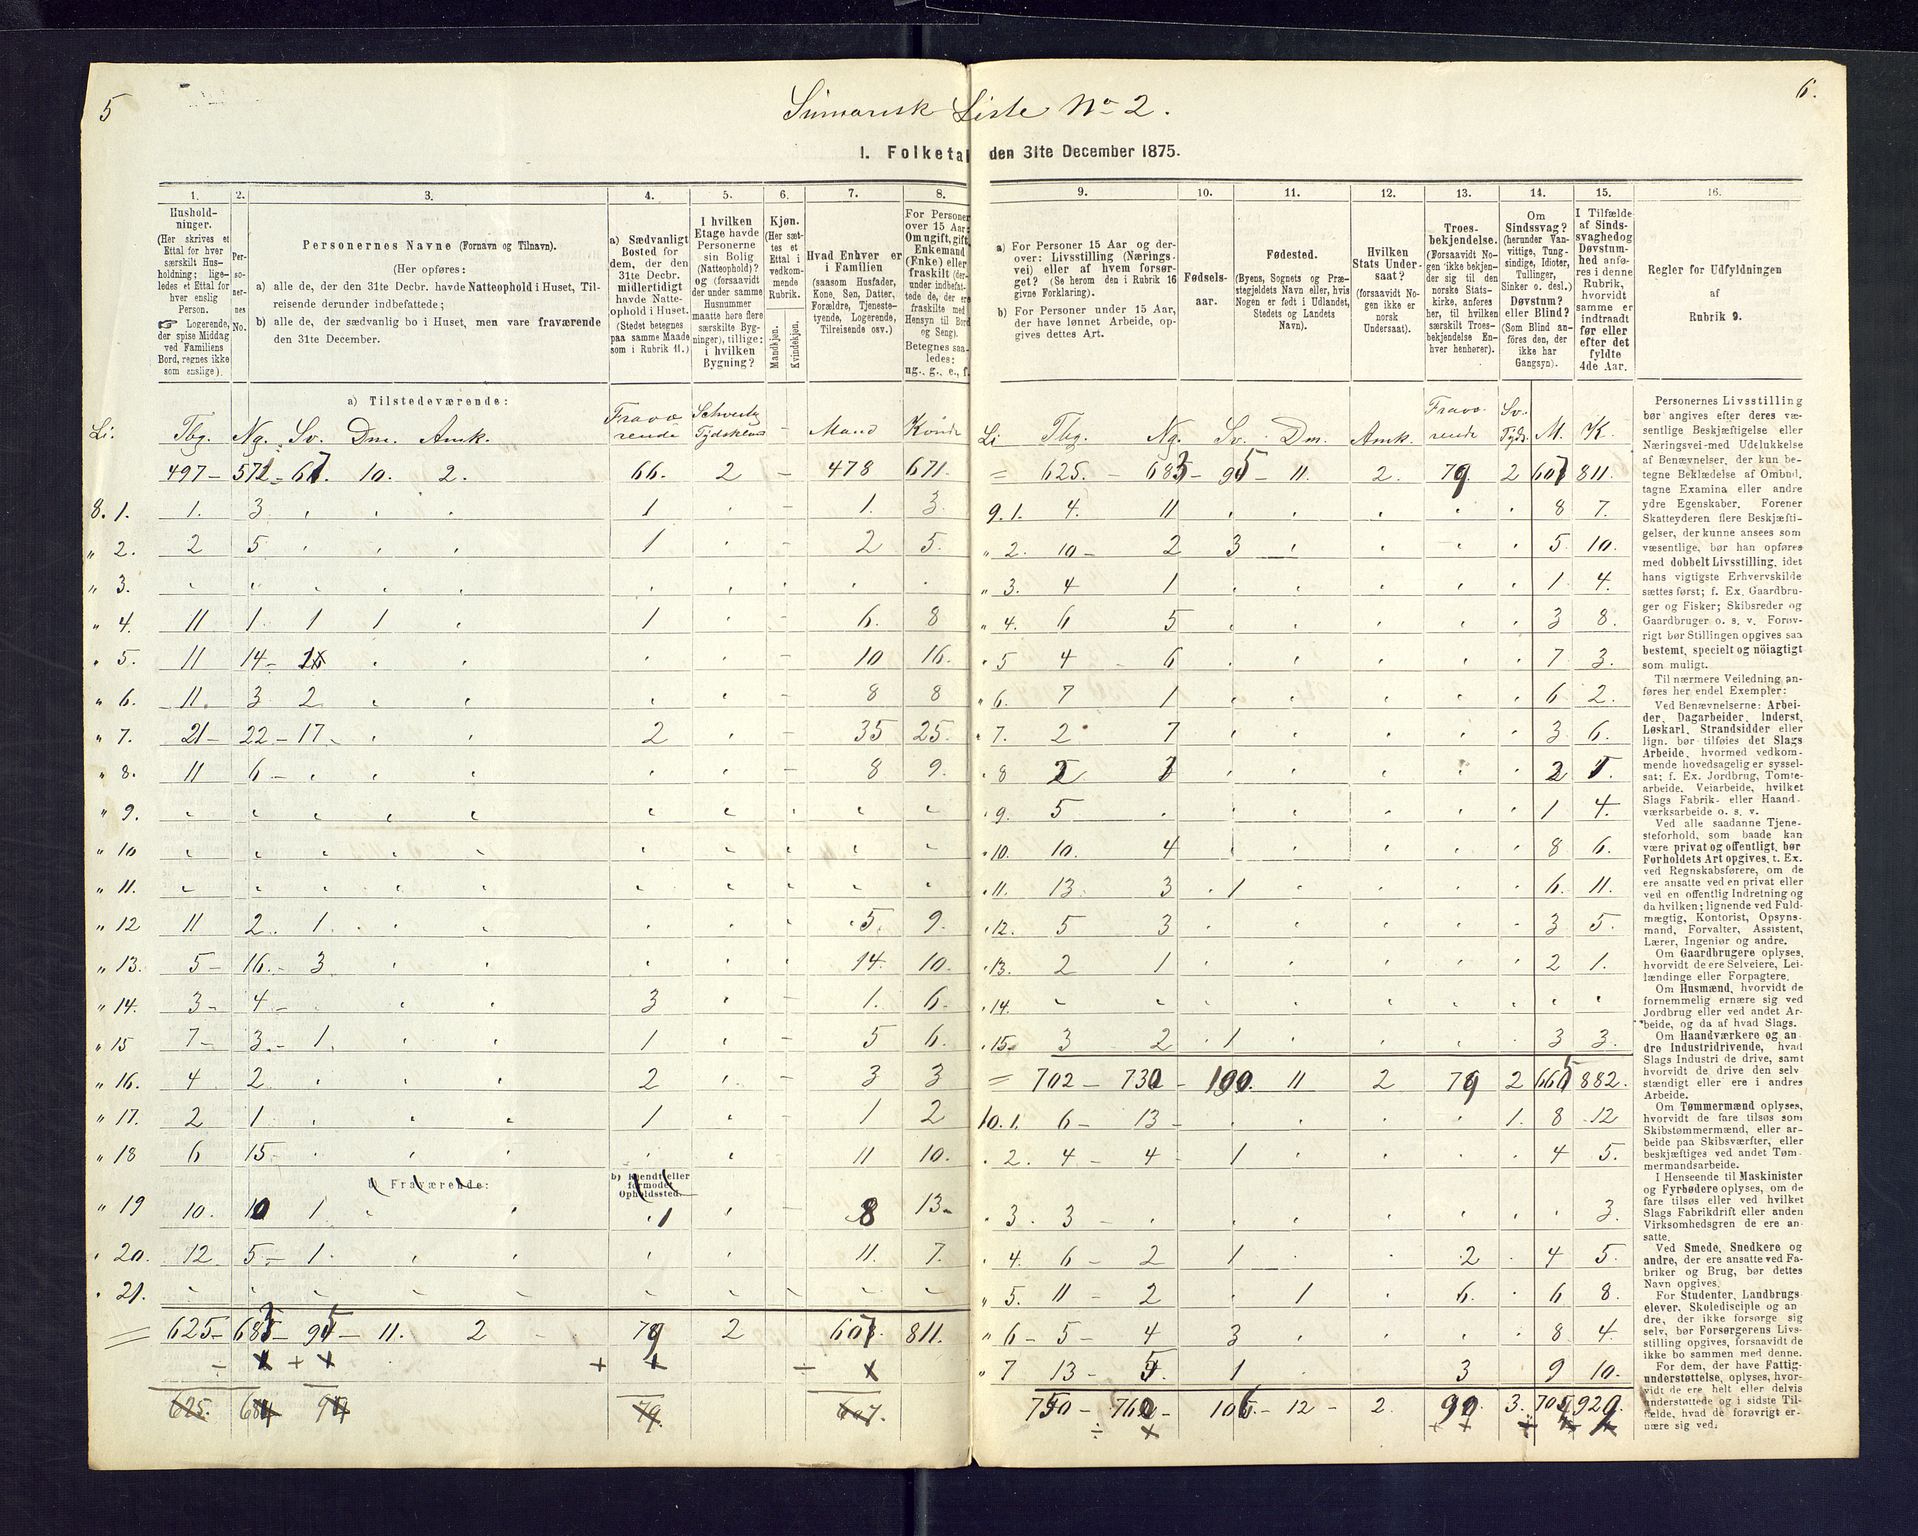 5
6.
Sumarisk Liste No 2.
I. Folketal den 31te December 1875.
1. 2. 3. 4. 5. 6. 7. 8. 9. 10. 11. 12. 13. 14. 15. 16.
Husholdninger.
(Her skrives et Ettal for hver særskilt Husholdning; ligeledes et Ettal for hver enslig Person.
☞ Logerende, der spise Middag ved Familiens Bord, regnes ikke som enslige).
Personernes No.
Personernes Navne (Fornavn og Tilnavn).
(Her opføres:
a) alle de, der den 31te Decbr. havde Natteophold i Huset, Tilreisende derunder indbefattede;
b) alle de, der sædvanlig bo i Huset, men vare fraværende den 31te December.
a) Sædvanligt Bosted for dem, der den 31te Decbr. midlertidigt havde Natteophold i Huset.
(Stedet betegnes paa samme Maade som i Rubrik 11.)
I hvilken Etage havde Personerne sin Bolig (Natteophold)? og (forsaavidt der under samme Husnummer maatte høre flere særskilte Bygninger), tillige: i hvilken Bygning?
Kjøn.
(Her sættes et Ettal i vedkommende Rubrik.
Mandkjøn.
Kvindekjøn.
Hvad Enhver er i Familien
(saasom Husfader, Kone, Søn, Datter, Forældre, Tjenestetyende, Logerende, Tilreisende osv.)
For Personer over 15 Aar: Om ugift, gift, Enkemand (Enke) eller fraskilt (derunder indbefattede de, der ere fraskilte med Hensyn til Bord og Seng).
Betegnes saaledes: ug., g., e., f.
a) For Personer 15 Aar og derover: Livsstilling (Næringsvei) eller af hvem forsørget? (Se herom den i Rubrik 16 givne Forklaring).
b) For Personer under 15 Aar, der have lønnet Arbeide, opgives dettes Art.
Fødselsaar.
Fødested.
(Byens, Sognets og Præstegjeldets Navn eller, hvis Nogen er født i Udlandet, Stedets og Landets Navn).
Hvilken Stats Undersaat?
(forsaavidt Nogen ikke er norsk Undersaat).
Troesbekjendelse.
(Forsaavidt Nogen ikke bekjender sig til den norske Statskirke, anføres her, til hvilken særskilt Troesbekjendelse Enhver henhører).
Om Sindssvag?
(herunder Vanvittige, Tungsindige, Idioter, Tullinger, Sinker o. desl.)
Døvstum? eller Blind?
(Som Blind anføres den, der ikke har Gangsyn).
I Tilfælde af Sindssvaghed og Døvstumhed anføres i denne Rubrik, hvorvidt samme er indtraadt før eller efter det fyldte 4de Aar.
Regler for Udfyldningen af Rubrik 9.
a) Tilstedeværende:
Li. Tbg. Ng. Sv. Dm. Amk. Fraværende Mand Kvinde
497 - 572 - 67. 10. 2. 66. 2 - 478 671.
8. 1. 1. 3 , , , 1 , - 1. 3.
" 2. 2 5 , , , 1 , - 2 5.
" 3. , , , , , , , , , ,
" 4. 11 1 1 1 , 1 , - 6. 8
" 5. 11 14 - , , , , - 10 16.
" 6. 11 3 2 , , , , - 8 8
" 7. 21 - 22 - 17. , , 2 , - 35 25.
" 8. 11 6 - , , , , , - 8 9.
" 9. , , , , , , , , ,
" 10 , , , , , , , , ,
" 11. , , , , , , , , ,
" 12 11 2 1 , , , , , 5. 9.
" 13. 5 - 16. - 3 , , , , - 14. 10.
" 14. 3 - 4 - , , , 3 , - 1. 6.
" 15 7 - 3 - 1 , , 1 , - 5 6.
" 16. 4 2 , , , 2 , - 3 3
" 17. 2 1 , , , 1 , - 1 2
" 18 6 15 , , , , , 11 10.
b) Fraværende:
b) Kjendt eller formodet Opholdssted.
" 19 10. 10 1 , , 1 , - 8 13 -
" 20. 12 5 - 1 , , , , - 11. 7.
" 21. , , , , , , , , ,
625 - 683 - 95 - 11. 2 79 2 607 811.
625. 684 94 79. 607.
Li Tbg. Ng. Sv. Dm. Amk. Fraværende Sv. Tyds. M. K.
= 625. - 683 - 95 - 11. 2. 79 2 607 811.
9. 1. 4. 11 , , , , , 8 7.
" 2. 10 - 2 3 , , , , 5 10.
" 3. 4 1 , , , , , 1 4.
" 4. 6 5 , , , , , 3 8.
" 5 4 - 6 , , , , , 7 3.
" 6. 7 1 , , , , , 6 2.
" 7. 2 7 , , , , , 3 6.
" 8 , , , , , 2
" 9. 5 , , , , , , 1 4.
" 10. 10. 4 , , , , , 8 6.
" 11. 13. 3 1 , , , , 6. 11.
" 12. 5 3 , , , , , 3 5.
" 13. 2 1 , , , , , 2 1.
" 14. , , , , , , , , ,
" 15. 3 2 1 , , , , 3 3.
= 702 - 730 - 100. 11 2 79 2 665 882.
10. 1. 6 - 13 - , , , , 1. 8 12
" 2. 4 - 4 - 1 , , , , 4 5.
" 3. 3 - , , , , , , 3.
" 4. 6 - 2 1 , , 2 , 4 5
" 5. 11 - 2 , 1 , 6. , 6 8.
" 6 - 5 - 4 3 , , , , 8 4.
" 7 13 - 5. 1 , , 3 , 9 10.
750 - 762 - 106 - 12 - 2. 90 3. 705 929.
Personernes Livsstilling bør angives efter deres væsentlige Beskjæftigelse eller Næringsvei med Udelukkelse af Benævnelser, der kun betegne Beklædelse af Ombud, tagne Examina eller andre ydre Egenskaber. Forener Skatteyderen flere Beskjæftigelser, der kunne ansees som væsentlige, bør han opføres med dobbelt Livsstilling, idet hans vigtigste Erhvervskilde sættes først; f. Ex. Gaardbruger og Fisker; Skibsreder og Gaardbruger o. s. v. Forøvrigt bør Stillingen opgives saa bestemt, specielt og nöiagtigt som muligt.
Til nærmere Veiledning anføres her endel Exempler:
Ved Benævnelserne: Arbeider, Dagarbeider, Inderst, Løskarl, Strandsidder eller lign. bør tilføies det Slags Arbeide, hvormed vedkommende hovedsagelig er sysselsat; f. Ex. Jordbrug, Tomtearbeide. Veiarbeide, hvilket Slags Fabrik- eller Haandværksarbeide o. s. v.
Ved alle saadanne Tjenesteforhold, som baade kan være privat og offentligt, bør Forholdets Art opgives, t. Ex. ved Regnskabsførere, om de ere ansatte ved en privat eller ved en offentlig Indretning og da hvilken; lignende ved Fuldmægtig, Kontorist, Opsynsmand, Forvalter, Assistent, Lærer, Ingeniør og andre.
Om Gaardbrugere oplyses, hvorvidt de ere Selveiere, Leilændinge eller Forpagtere.
Om Husmænd, hvorvidt de fornemmelig ernære sig ved Jordbrug eller ved andet Arbeide, og da af hvad Slags.
Om Haandværkere og andre Industridrivende, hvad Slags Industri de drive, samt hvorvidt de drive den selvstændigt eller ere i andres Arbeide.
Om Tømmermænd oplyses, hvorvidt de fare tilsøs som Skibstømmermænd, eller arbeide paa Skibsværfter, eller beskjæftiges ved andet Tømmermandsarbeide.
I Henseende til Maskinister og Fyrbødere oplyses, om de fare tilsøs eller ved hvilket Slags Fabrikdrift eller anden Virksomhedsgren de ere ansatte.
Ved Smede, Snedkere og andre, der ere ansatte ved Fabriker og Brug, bør dettes Navn opgives.
For Studenter, Landbrugselever, Skoledisciple og andre, der ikke forsørge sig selv, bør Forsørgerens Livsstilling opgives, forsaavidt de ikke bo sammen med denne.
For dem, der have Fattigunderstøttelse, oplyses, hvorvidt de ere helt eller delvis understøttede og i sidste Tilfælde, hvad de forøvrigt ernære sig ved.